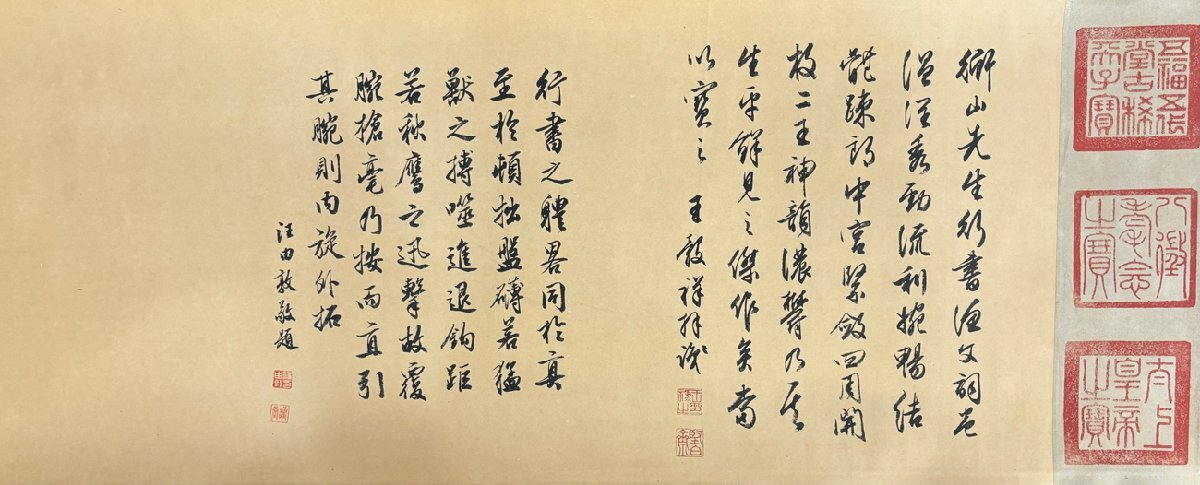 五福五代
堂古稀
天子寶
八徵
耄念
之寶
太上
皇帝
之寶
衡山先生行書漁父詞
溫淳秀勁流利婉暢結
體疎朗中宮緊斂四周開
枚二王神韻濃鬱乃其
生平鮮見之傑作矣當
以寶之 王穀祥拜識
行書之體畧同於真
至於頓拙盤礴若猛
獸之搏噬進退鉤距
若秋鷹之迅擊故覆
腕搶毫乃按而直引
其腕則内旋外拓
汪由敦敬題